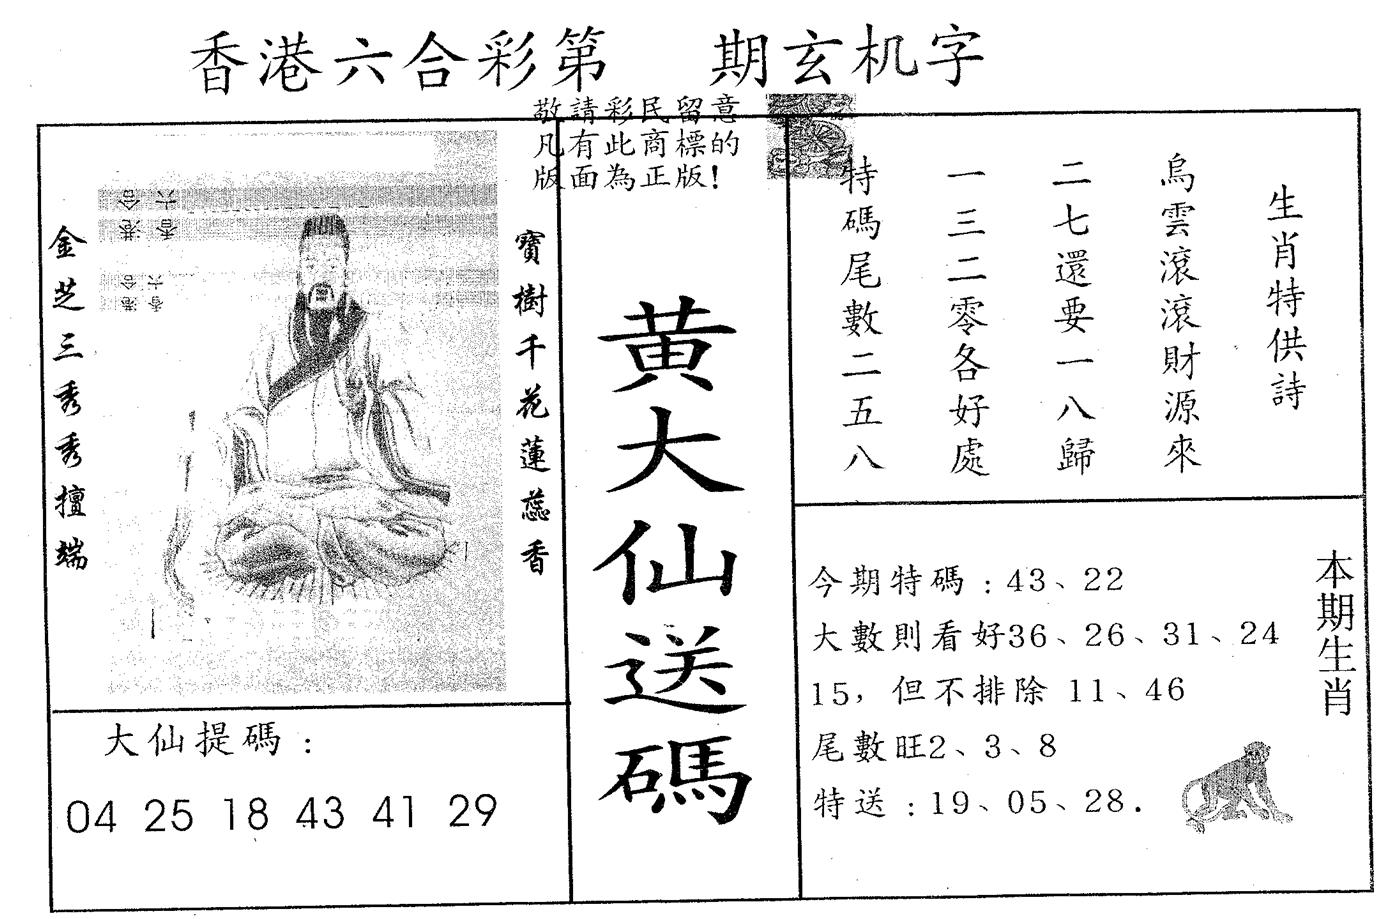 香港六合彩第 期玄机字
敬請彩民留意
凡有此商標的
版面為正版!
生肖特供詩
烏雲滾滾財源來
二七還要一八歸
一三二零各好處
特碼尾數二五八
寶樹千花蓮蕊香
金芝三秀秀擅端
六合
香港
六合
香港
黄大仙送碼
大仙提碼:
04 25 18 43 41 29
本期生肖
今期特碼:43、22
大數則看好36、26、31、24
15,但不排除 11、46
尾數旺2、3、8
特送:19、05、28.